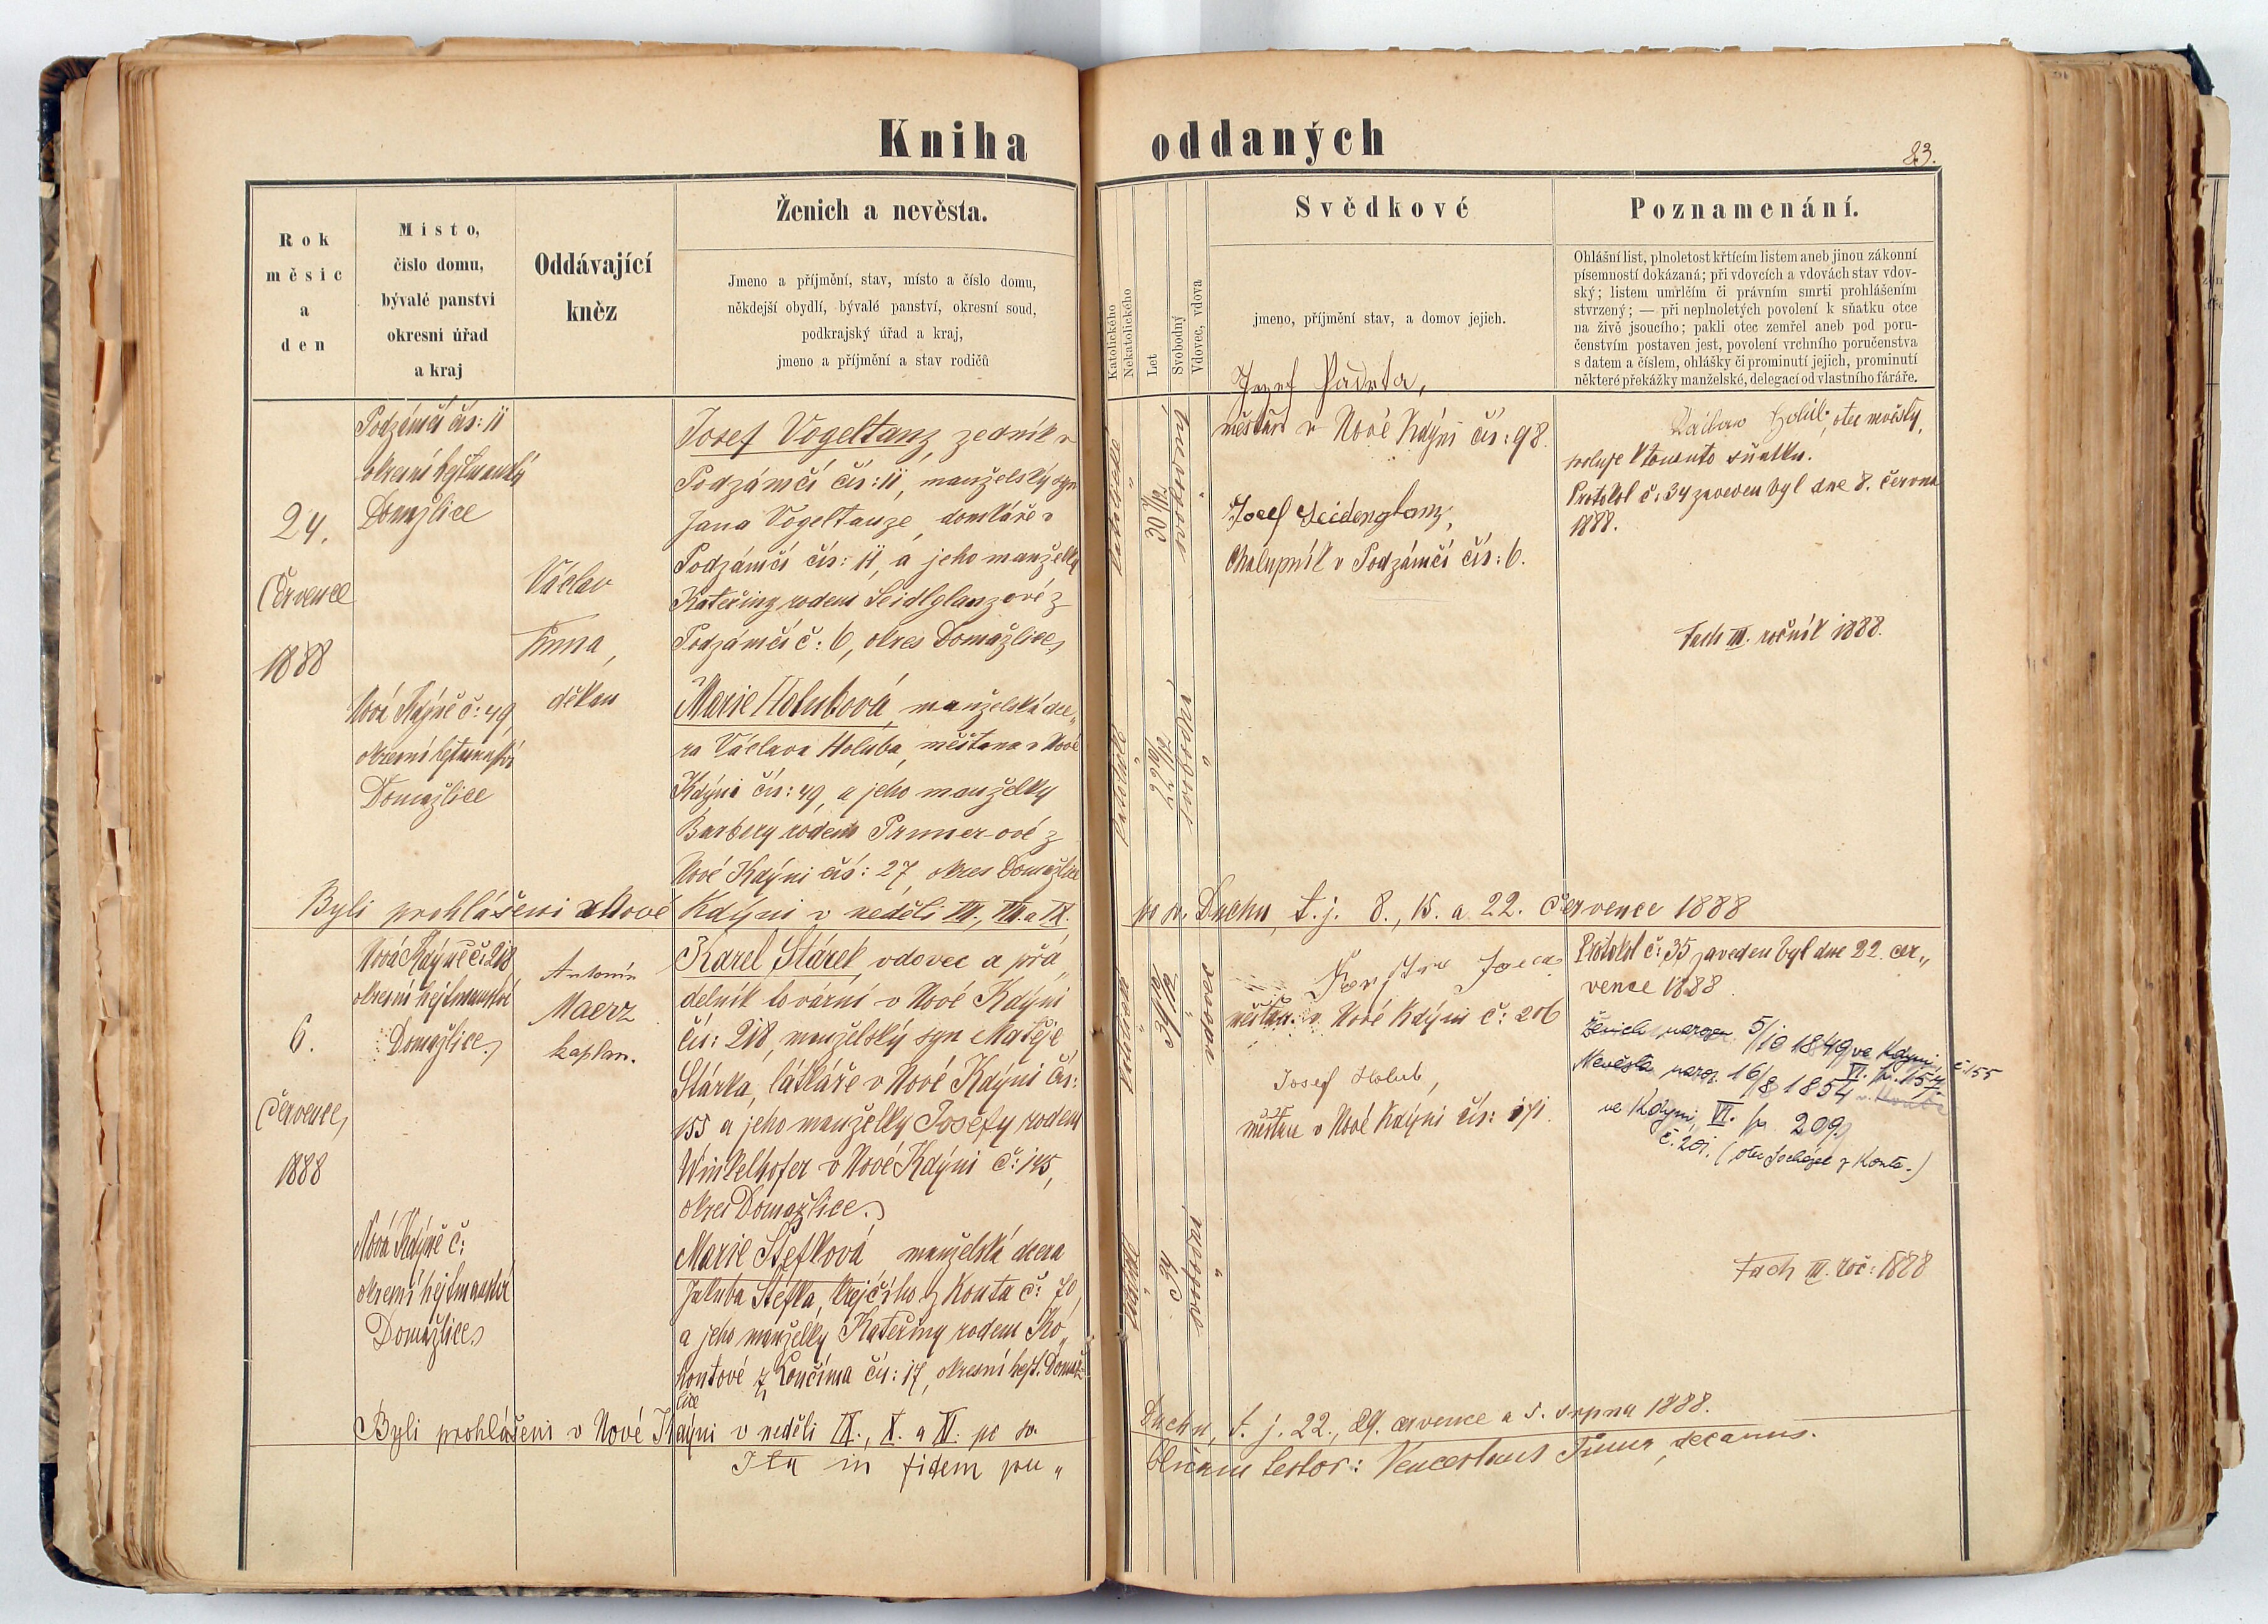 Kniha oddaných
83.
Rok
měsíc
a
den
Místo,
číslo domu,
bývalé panství
okresní úřad
a kraj
Oddávající
kněz
Ženich a nevěsta.
Jmeno a příjmění, stav, místo a číslo domu,
někdejší obydlí, bývalé panství, okresní soud,
podkrajský úřad a kraj,
jmeno a příjmění a stav rodičů
Katolického
Nekatolického
Let
Svobodný
Vdovec, vdova
Svědkové
jmeno, příjmění stav, a domov jejich.
Poznamenání.
Ohlášní list, plnoletost křtícím listem aneb jinou zákonní
písemností dokázaná; při vdovcích a vdovách stav vdov-
ský; listem umrlčím či právním smrti prohlášením
stvrzený; — při neplnoletých povolení k sňatku otce
na živě jsoucího; pakli otec zemřel aneb pod poru-
čenstvím postaven jest, povolení vrchního poručenstva
s datem a číslem, ohlášky či prominutí jejich, prominutí
některé překážky manželské, delegací od vlastního fáráře.
24.
Července
1888
Podzámčí čís: 11
okresní hejtmanský
Domažlice
Nová Kdýně č: 49
okresní hejtmanství
Domažlice
Václav
děkan
Josef Vogeltanz, zedník v
Podzámčí čís: 11, manželský syn
Jana Vogeltanze, domkáře v
Podzámčí čís: 11, a jeho manželky
Kateřiny rodem Seidlglanzové z
Podzámčí č: 6, okres Domažlice
Marie Holubová, manželská dce„
ra Václava Holuba, měštana v Nové
Kdýni čís: 49, a jeho manželky
Barbery rodem z
Nové Kdýni čís: 27, okres Domažlice
katolické
30
svobodný
katolické
22
svobodná
Josef
měšťan v Nové Kdýni čís: 98.
Josef Seidenglanz,
chalupník v Podzámčí čís: 6.
Václav Holub, otec nevěsty,
svoluje k tomuto sňatku.
Protokol č: 34 zaveden byl dne 8. června
1888.
Fach III. ročník 1888.
Byli prohlášeni v Nové Kdýni v neděli VII., VIII. a IX. po sv. Duchu, t. j. 8., 15. a 22. července 1888
6.
Července,
1888
Nová Kdýně č: 218
okresní hejtmanství
Domažlice
Nová Kdýně č:
okresní hejtmanství
Domažlice
Antonín
Maerz
kaplan.
Karel Stárek, vdovec a přá„
delník tovární v Nové Kdýni
čís: 218, manželský syn Matěje
Stárka, látkáře v Nové Kdýni čís:
155 a jeho manželky Josefy rodem
Winkelhofer v Nové Kdýni č: 145,
okres Domažlice.
Marie Štefková manželská dcera
Jakuba Štefka, krejčího z Kouta č: 70,
a jeho manželky Kateřiny rodem Ko„
houtové z Loučíma čís: 17, okresní hejt. Domaž-
lice
katolické
vdovec
34
svobodná
měšťan v Nové Kdýni č: 206
Josef Holub,
měšťan v Nové Kdýni čís: 171.
Protokol č: 35 zaveden byl dne 22. čer„
vence 1888
Ženich naroz. 5/10 1849 ve Kdyni, č. 155
VI. p. 154.
Nevěsta naroz. 16/8 1854 v Koutě
ve Kdyni, VI. p. 209,
č. 201. (otec pochází z Kouta.)
Fach III. roč: 1888
Byli prohlášeni v Nové Kdýni v neděli IX., X. a XI. po sv. Duchu, t. j. 22., 29. července a 5. srpna 1888.
Ita in fidem pu„blicam testor: Venceslaus decanus.